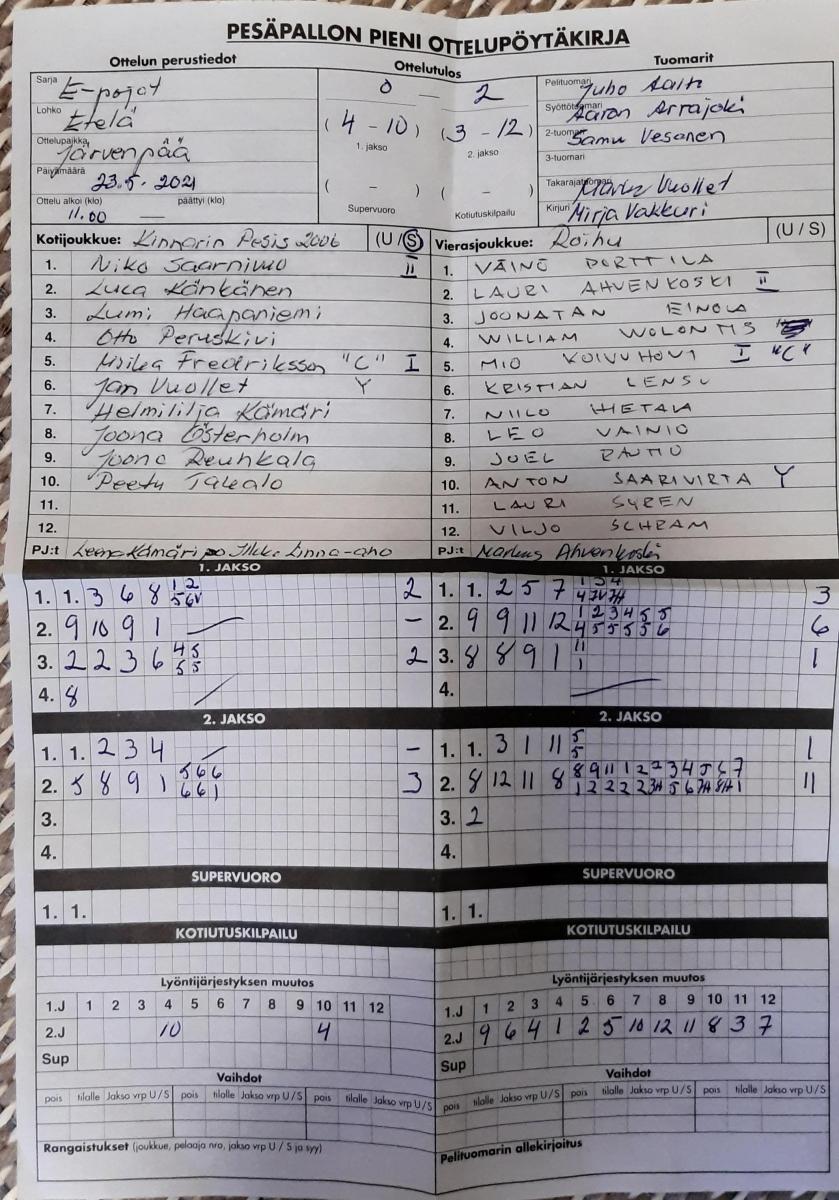 PESÄPALLON PIENI OTTELUPÖYTÄKIRJA
Ottelun perustiedot
Sarja E-pojat
Lohko Etelä
Ottelupaikka Järvenpää
Päivämäärä 23.5.2021
Ottelu alkoi (klo) päättyi (klo)
11.00 —
Ottelutulos
0 — 2
( 4 - 10 ) ( 3 - 12 )
1. jakso 2. jakso
( - ) ( - )
Supervuoro Kotiutuskilpailu
Tuomarit
Pelituomari Juho Aalto
Syöttötuomari Aaron Arrajoki
2-tuomari Samu Vesanen
3-tuomari
Takarajatuomari Vuollet
Kirjuri Mirja Vakkuri
Kotijoukkue: Kinnarin Pesis 2006 (U / S)
1. Niko Saarnivuo II
2. Luca Känkänen
3. Lumi Haapaniemi
4. Otto Peruskivi
5. Miika Fredriksson "C" I
6. Jan Vuollet Y
7. Helmililja Kämäri
8. Joona Österholm
9. Joona Reuhkala
10. Peetu Takalo
11.
12.
PJ:t Leena Kämäri Ilkka Linna-aho
Vierasjoukkue: Roihu (U / S)
1. VÄINÖ PORTTILA
2. LAURI AHVENKOSKI II
3. JOONATAN EINOLA
4. WILLIAM WOLONTIS
5. MIO KOIVUHOVI I "C"
6. KRISTIAN LENSU
7. NIILO HIETALA
8. LEO VAINIO
9. JOEL RAUTIO
10. ANTON SAARIVIRTA Y
11. LAURI SYREN
12. VILJO SCHRAM
PJ:t Markus Ahvenkoski
1. JAKSO
1. 1. 3 6 8 1 2 2
5 6V
2. 9 10 9 1 —
3. 2 2 3 6 4 5 2
5 5
4. 8
1. JAKSO
1. 1. 2 5 7 1 3 4 3
4 7V 7H
2. 9 9 11 12 1 2 3 4 5 5 6
4 5 5 5 5 6
3. 8 8 9 1 11 1
1
4.
2. JAKSO
1. 1. 2 3 4 —
2. 5 8 9 1 5 6 6 3
6 6 1
3.
4.
2. JAKSO
1. 1. 3 1 11 5 1
5
2. 8 12 11 8 8 9 11 1 2 2 3 4 5 6 7 11
1 2 2 2 2 3H 5 6 7H 8H 1
3. 2
4.
SUPERVUORO
1. 1.
SUPERVUORO
1. 1.
KOTIUTUSKILPAILU
KOTIUTUSKILPAILU
Lyöntijärjestyksen muutos
1.J 1 2 3 4 5 6 7 8 9 10 11 12
2.J 10 4
Sup
Lyöntijärjestyksen muutos
1.J 1 2 3 4 5 6 7 8 9 10 11 12
2.J 9 6 4 1 2 5 10 12 11 8 3 7
Sup
Vaihdot
pois tilalle Jakso vrp U / S pois tilalle Jakso vrp U / S pois tilalle Jakso vrp U / S
Vaihdot
pois tilalle Jakso vrp U / S pois tilalle Jakso vrp U / S pois tilalle Jakso vrp U / S
Rangaistukset (joukkue, pelaaja nro, jakso vrp U / S ja syy)
Pelituomarin allekirjoitus